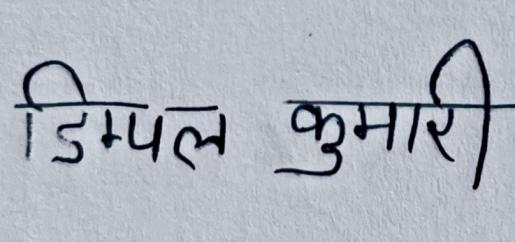 डिम्पल कुमारी